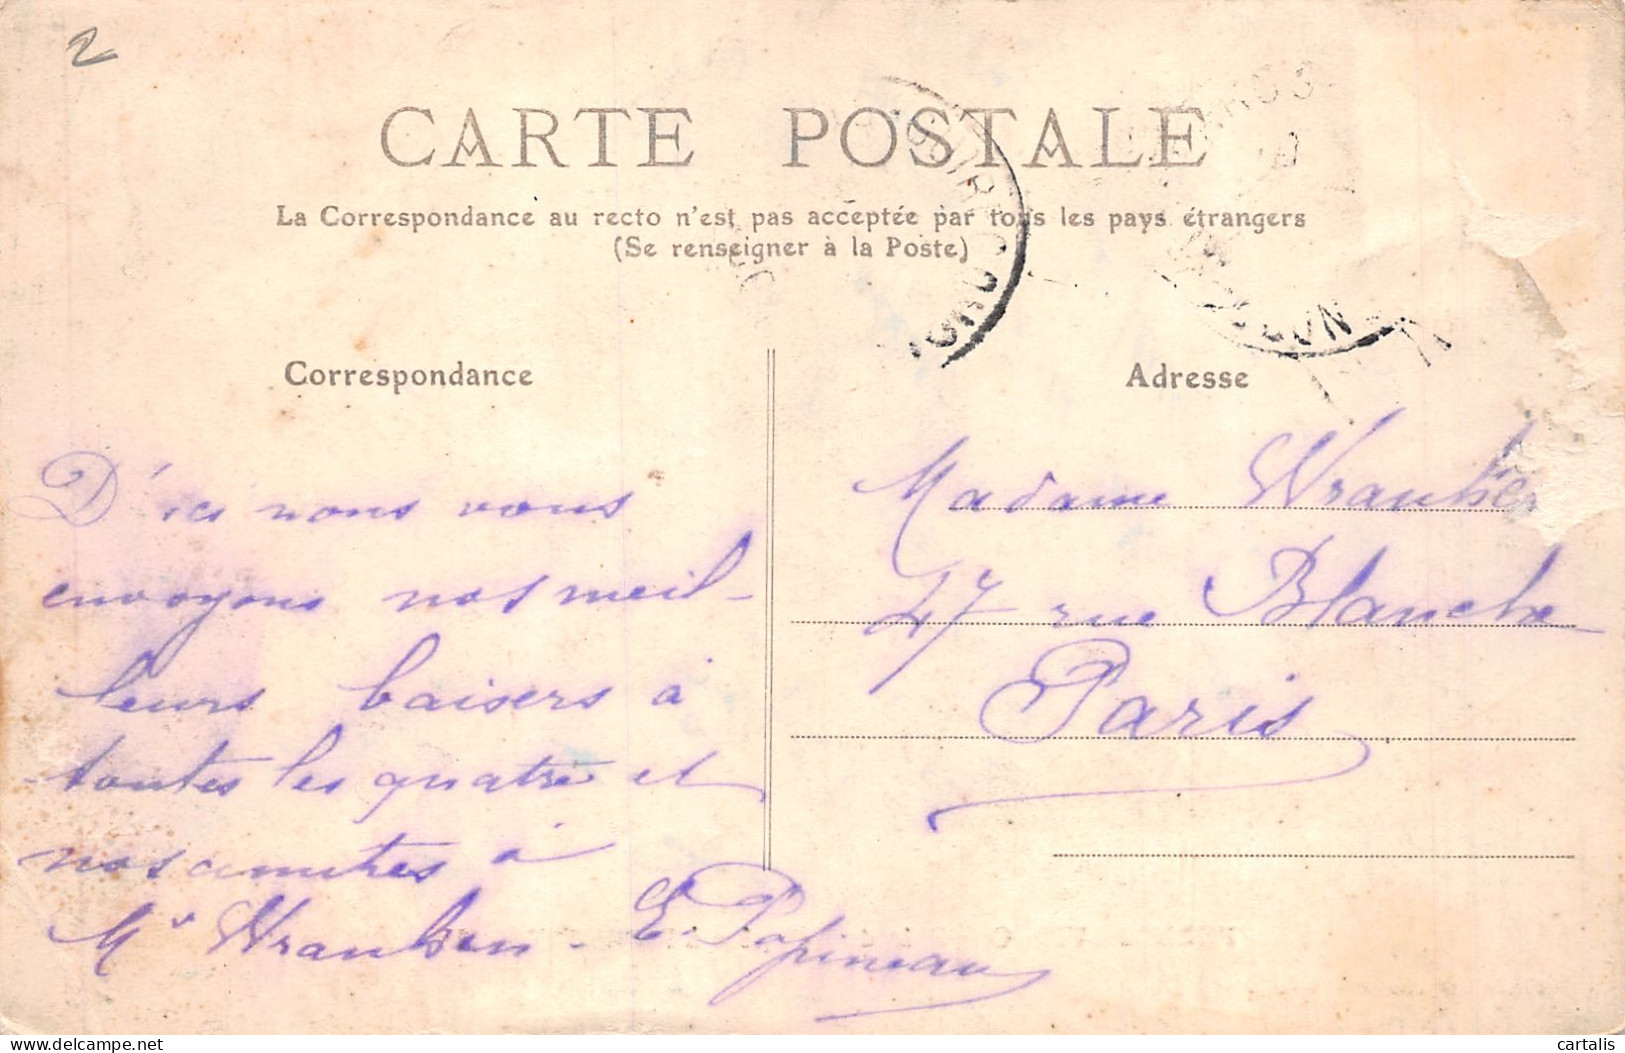 2
CARTE POSTALE
La Correspondance au recto n'est pas acceptée par tous les pays étrangers
(Se renseigner à la Poste)
Correspondance
Adresse
D'ici nous vous
envoyons nos meil-
leurs baisers à
toutes les quatre et
nos amitiés à
Mr - E. Papineau
Madame
47 rue Blanche
Paris
delcampe.net
cartalis